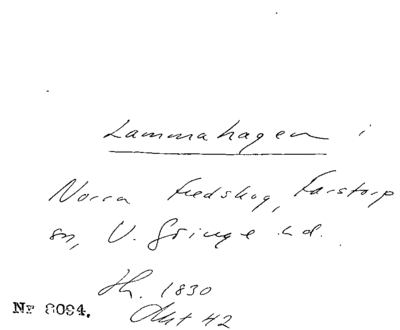 Lammahagen i
Norra Fredskog, Farstorp
sn, V. Göinge hd.
Th. 1830
Akt 42
Nr 8084.